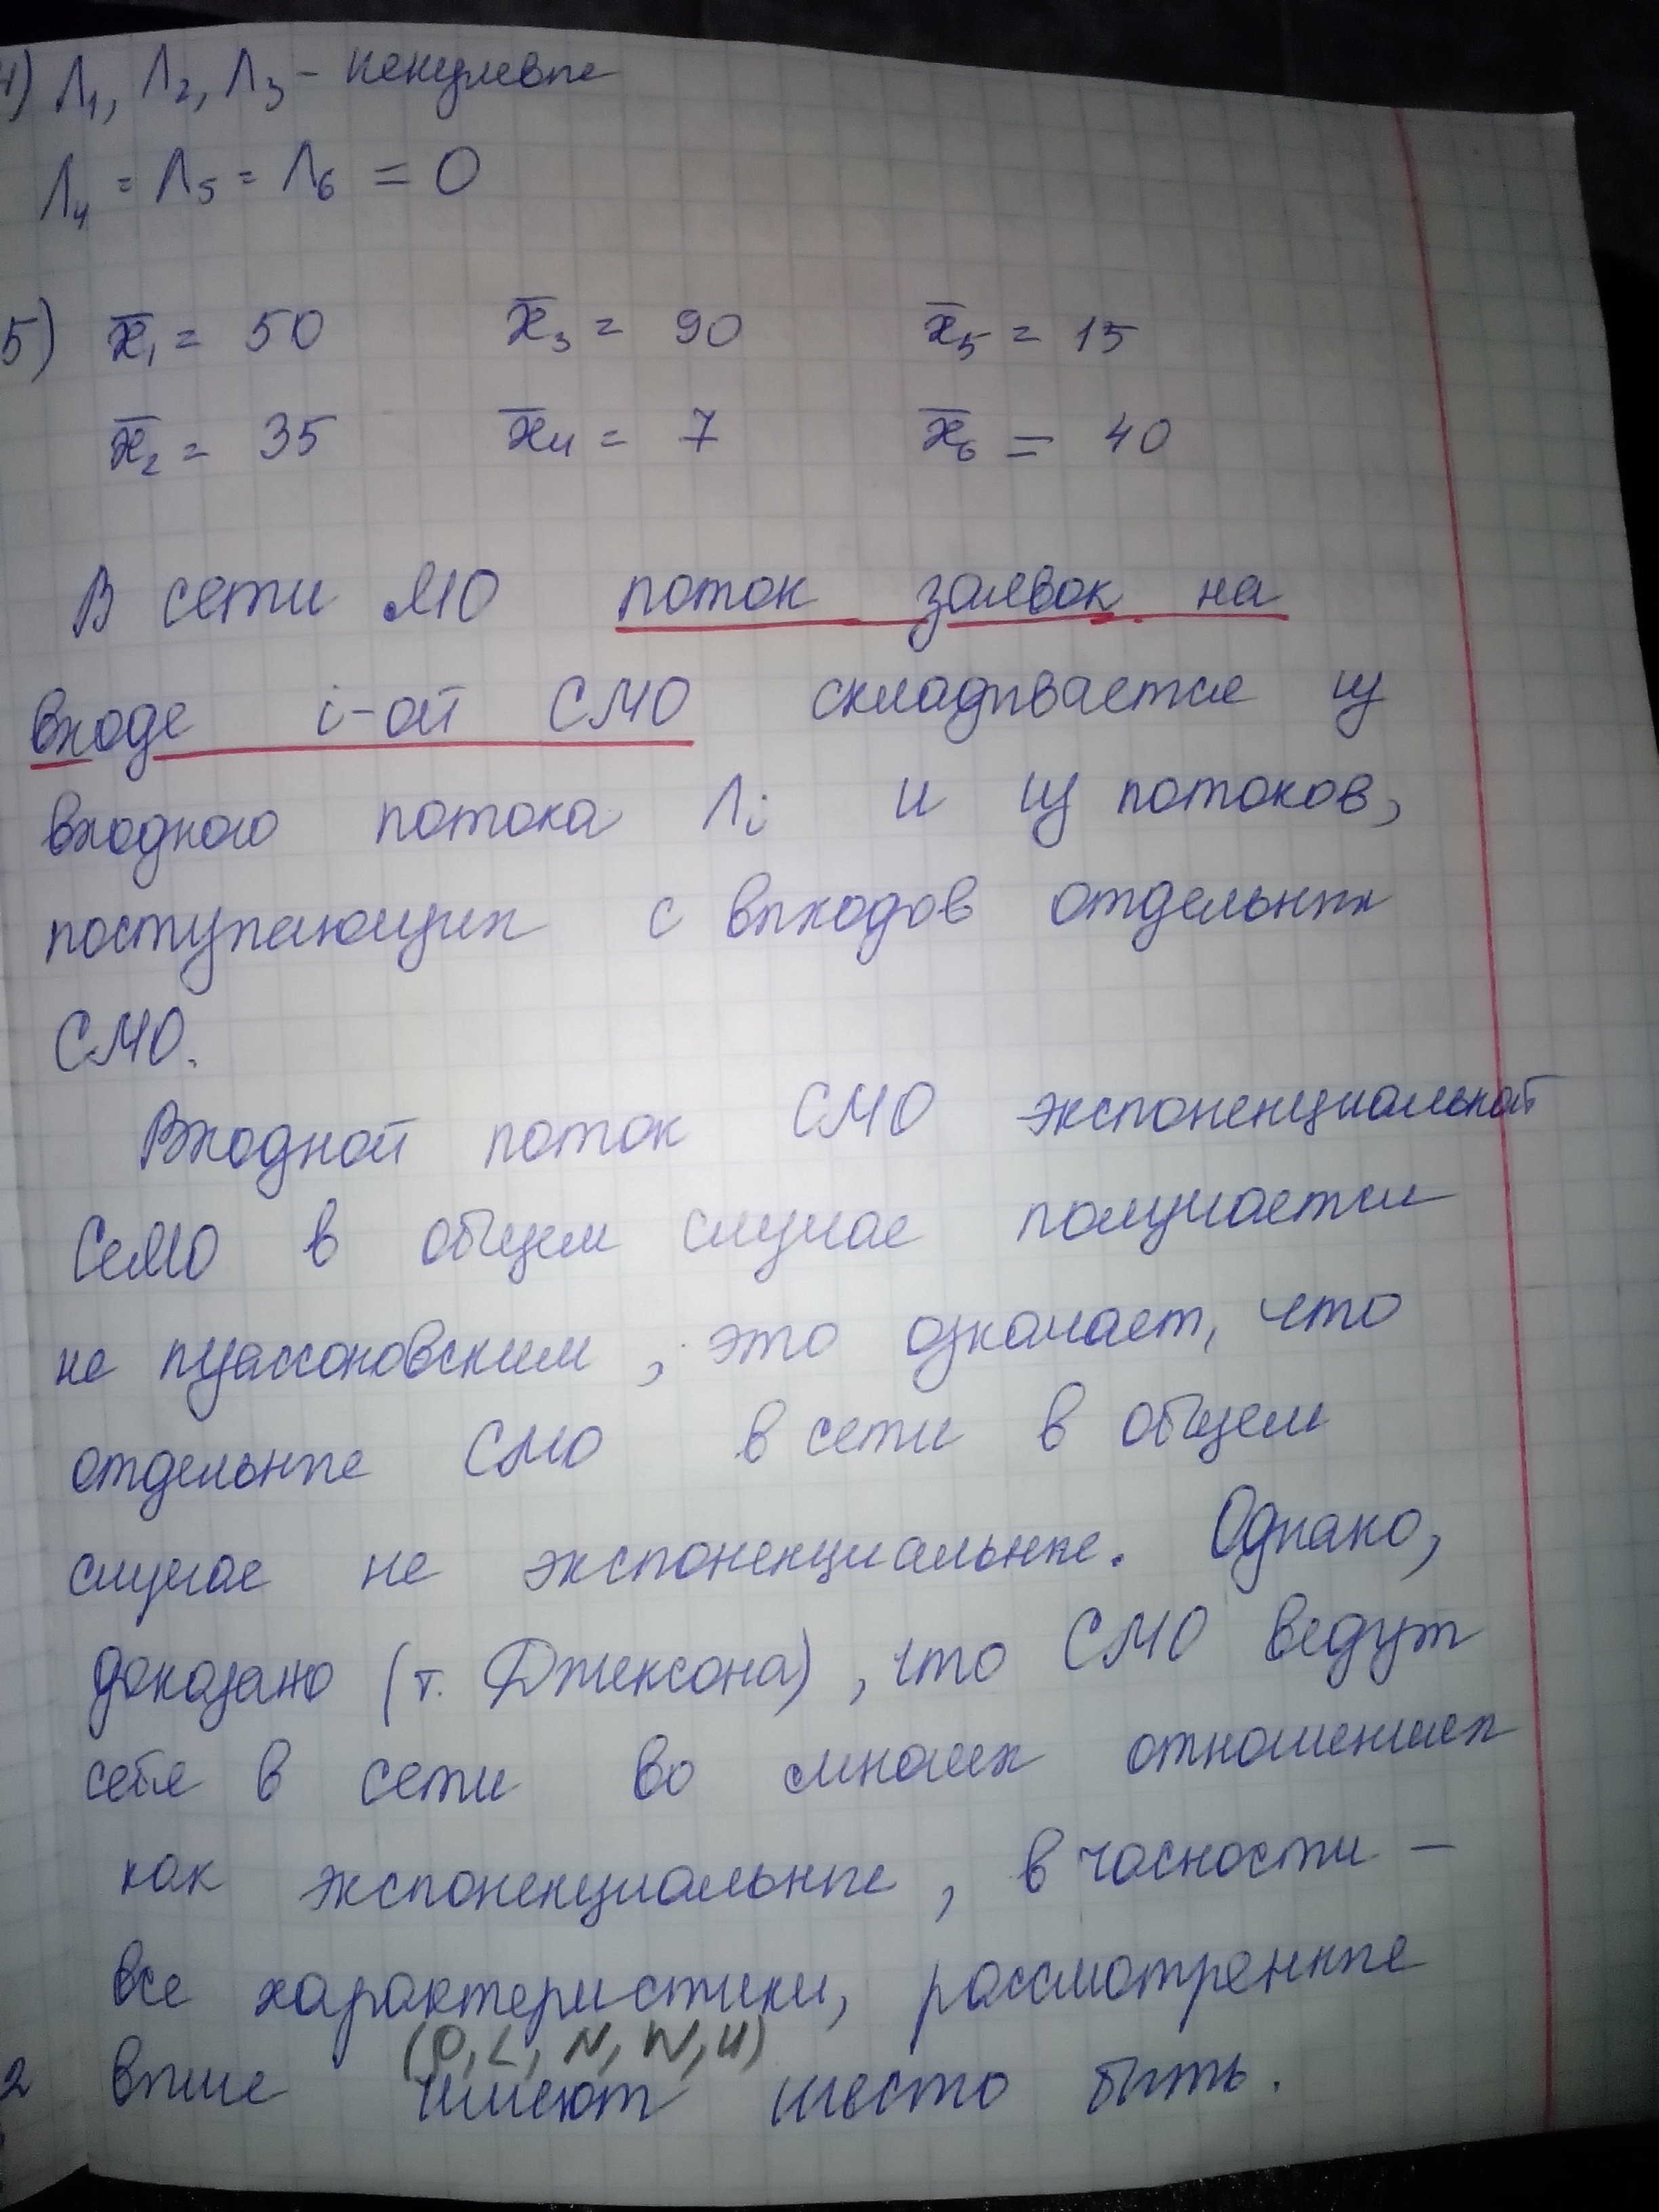 4) Λ₁, Λ₂, Λ₃ - ненулевые
Λ₄ = Λ₅ = Λ₆ = 0
5) x̄₁ = 50 x̄₃ = 90 x̄₅ = 15
x̄₂ = 35 x̄₄ = 7 x̄₆ = 40
В сети МО поток заявок на
входе i-ой СМО складывается из
входного потока Λi и из потоков,
поступающих с выходов отдельных
СМО.
Входной поток СМО экспоненциальной
СеМО в общем случае получается
не пуассоновским, это означает, что
отдельные СМО в сети в общем
случае не экспоненциальные. Однако,
доказано (т. Джексона), что СМО ведут
себя в сети во многих отношениях
как экспоненциальные, в часности -
все характеристики, рассмотренные
(ρ, L, N, W, U)
выше имеют место быть.